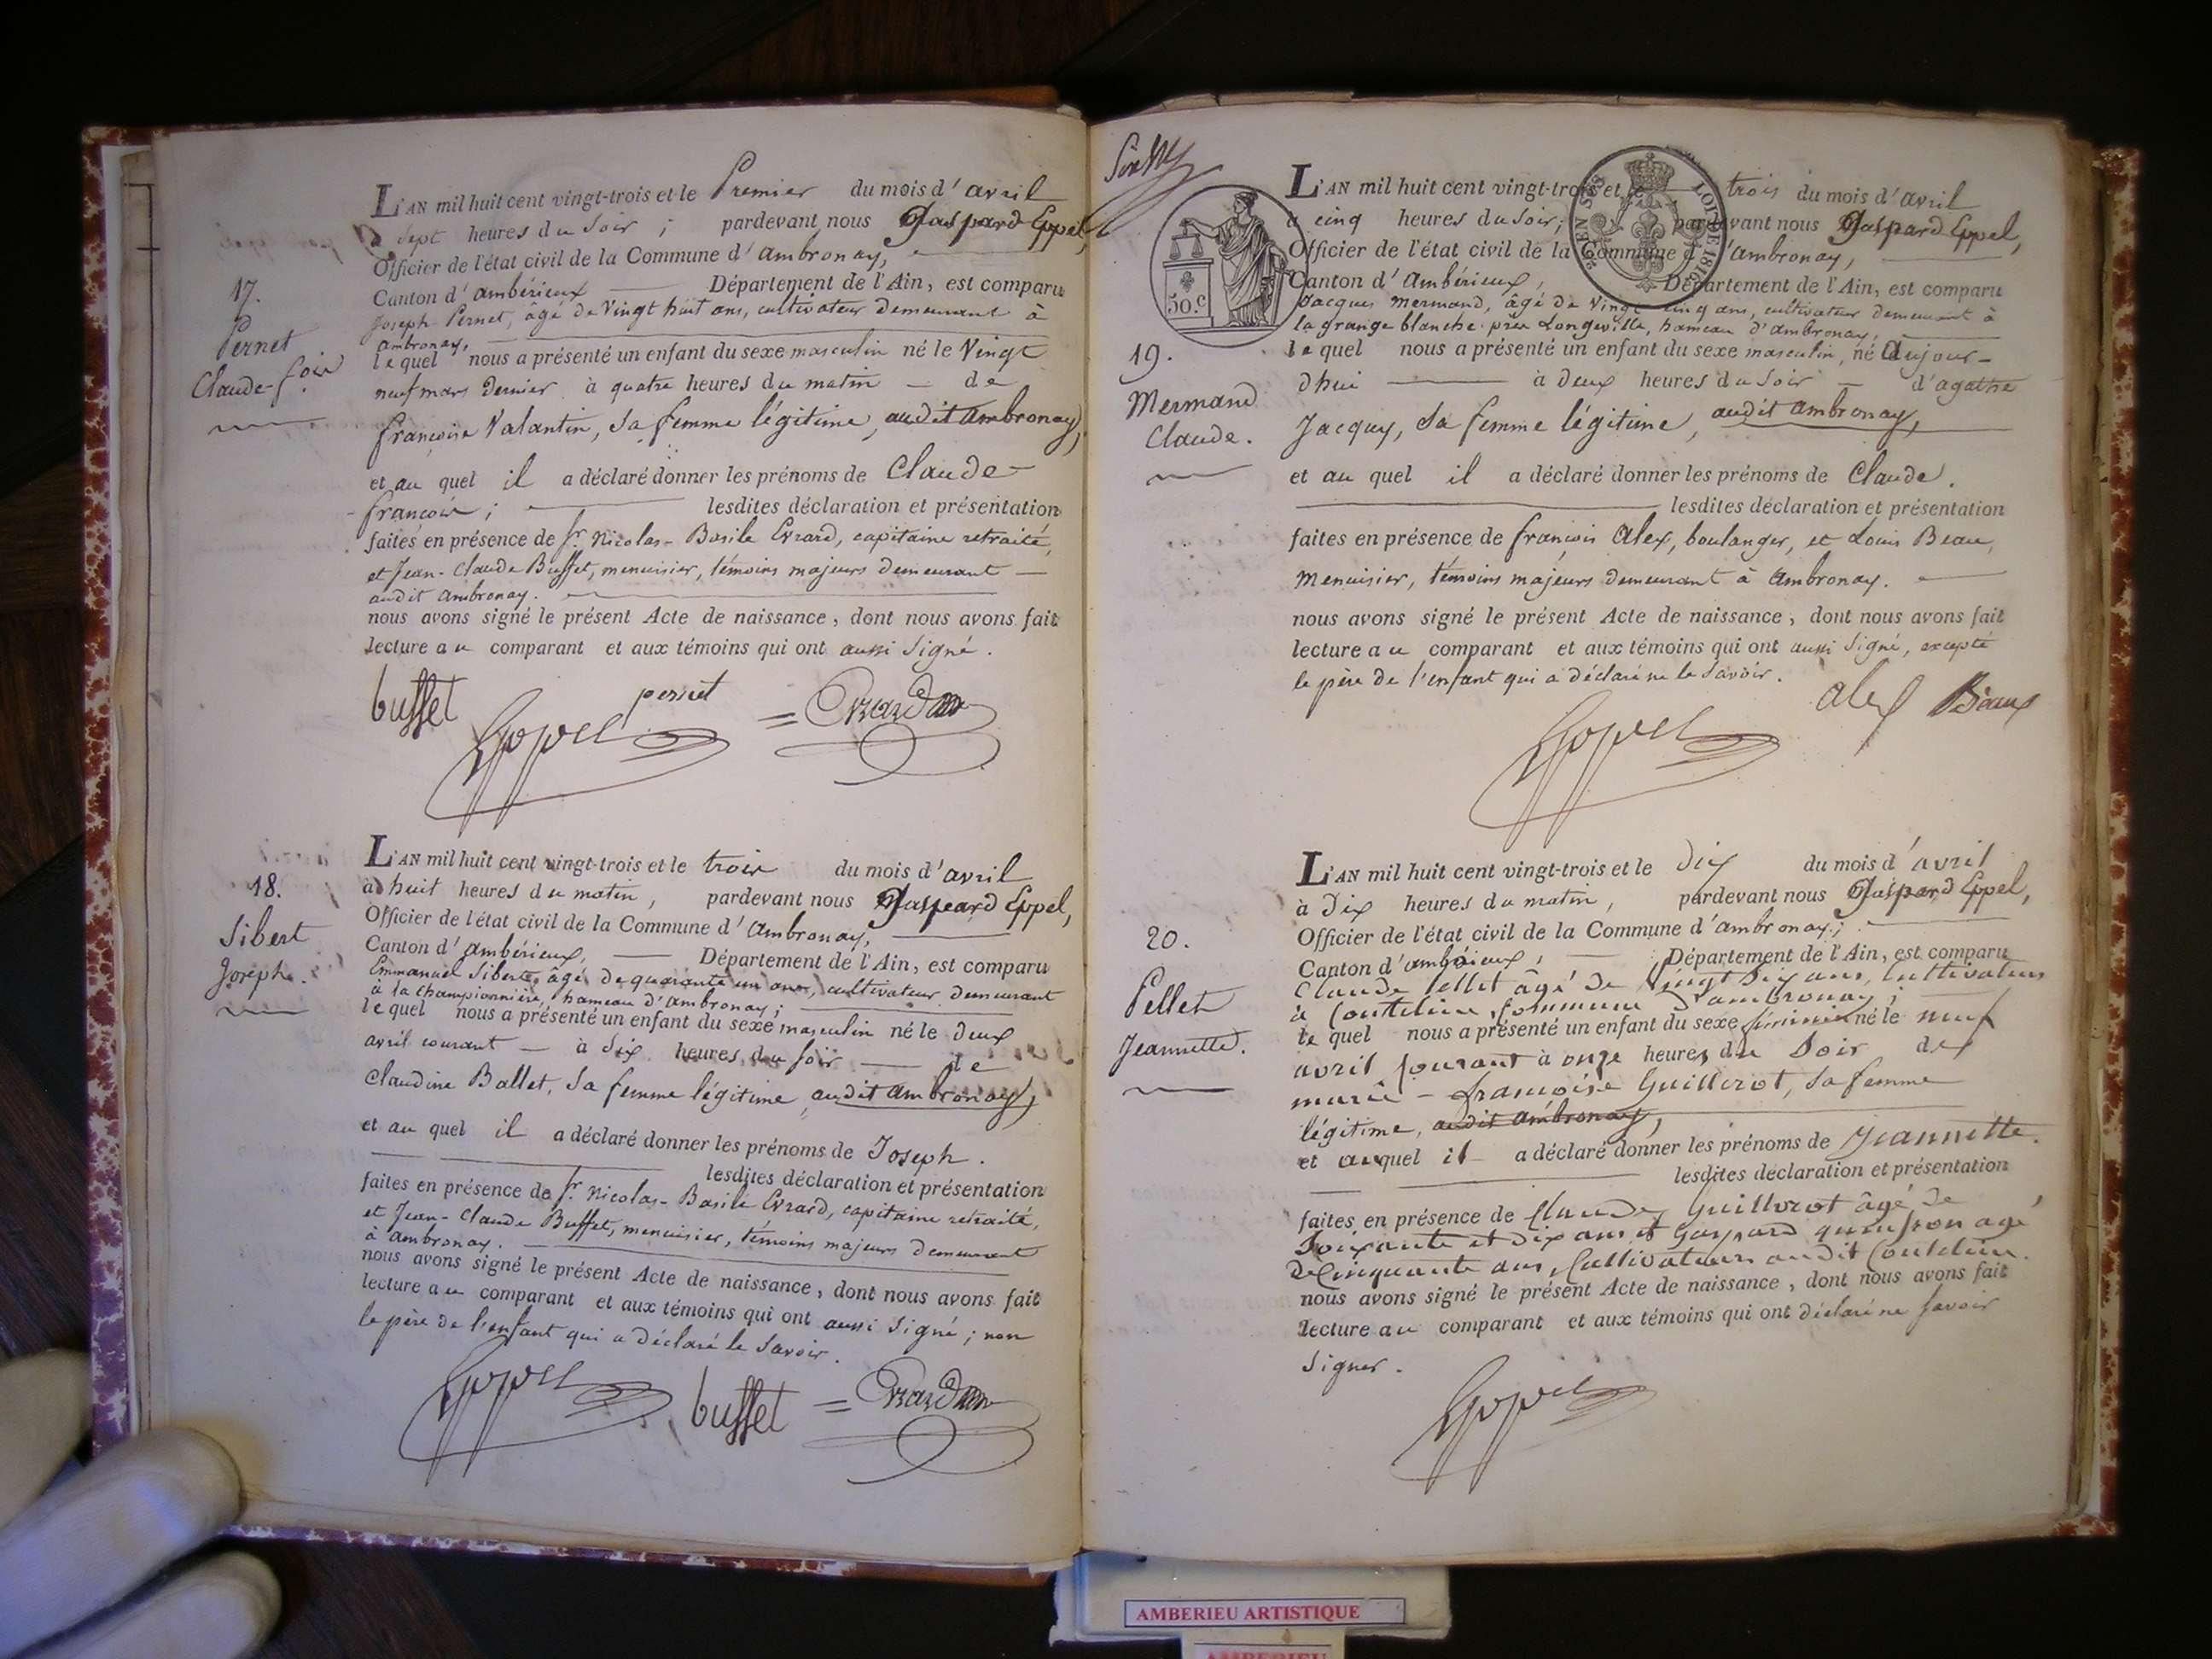 17.
Pernet
Claude-fois
L'AN mil huit cent vingt-trois et le Premier du mois d'avril
à sept heures du soir ; pardevant nous Gaspard Eppel,
Officier de l'état civil de la Commune d'ambronay,
Canton d'ambérieux Département de l'Ain, est comparu
Joseph Pernet, âgé de Vingt huit ans, cultivateur demeurant à
ambronay,
lequel nous a présenté un enfant du sexe masculin né le Vingt
neuf mars dernier à quatre heures du matin — de
françoise Valantin, sa femme légitime, audit ambronay,
et au quel il a déclaré donner les prénoms de Claude-
françois ; lesdites déclaration et présentation
faites en présence de Sr. Nicolas-Basile Evrard, capitaine retraité,
et Jean-Claude Buffet, menuisier, témoins majeurs demeurant
audit ambronay.
nous avons signé le présent Acte de naissance, dont nous avons fait
lecture au comparant et aux témoins qui ont aussi signé.
buffet pernet Evrard
Eppel
18.
Sibert
Joseph.
L'AN mil huit cent vingt-trois et le trois du mois d'avril
à huit heures du matin, pardevant nous Gaspard Eppel,
Officier de l'état civil de la Commune d'ambronay,
Canton d'ambérieux, Département de l'Ain, est comparu
Emmanuel Sibert, âgé de quarante un ans, cultivateur demeurant
à la championnière, hameau d'ambronay ;
lequel nous a présenté un enfant du sexe masculin né le deux
avril courant — à dix heures du soir — de
Claudine Ballet, sa femme légitime, audit ambronay,
et au quel il a déclaré donner les prénoms de Joseph.
lesdites déclaration et présentation
faites en présence de Sr. Nicolas-Basile Evrard, capitaine retraité,
et Jean-Claude Buffet, menuisier, témoins majeurs demeurant
à ambronay.
nous avons signé le présent Acte de naissance, dont nous avons fait
lecture au comparant et aux témoins qui ont aussi signé ; non
le père de l'enfant qui a déclaré le savoir.
Eppel buffet Evrard
50.c
LOI DE 1816
19.
Mermand
Claude.
L'AN mil huit cent vingt-trois et le trois du mois d'avril
à cinq heures du soir ; pardevant nous Gaspard Eppel,
Officier de l'état civil de la Commune d'ambronay,
Canton d'ambérieux, Département de l'Ain, est comparu
Jacques Mermand, âgé de Vingt cinq ans, cultivateur demeurant à
la grange blanche près Longeville, hameau d'ambronay,
lequel nous a présenté un enfant du sexe masculin, né aujour-
dhui à deux heures du soir — d'agathe
Jacquy, sa femme légitime, audit ambronay,
et au quel il a déclaré donner les prénoms de Claude.
lesdites déclaration et présentation
faites en présence de françois alex, boulanger, et Louis Beau,
menuisier, témoins majeurs demeurant à ambronay.
nous avons signé le présent Acte de naissance, dont nous avons fait
lecture au comparant et aux témoins qui ont aussi signé, excepté
le père de l'enfant qui a déclaré ne le savoir.
alex Beaux
Eppel
20.
Pellet
Jeannette.
L'AN mil huit cent vingt-trois et le dix du mois d'avril
à dix heures du matin, pardevant nous Gaspard Eppel,
Officier de l'état civil de la Commune d'ambronay ;
Canton d'ambérieux, Département de l'Ain, est comparu
Claude Pellet âgé de Vingt dix ans, cultivateur
à Coutelieu, commune d'ambronay ;
lequel nous a présenté un enfant du sexe féminin né le neuf
avril courant à onze heures du soir de
marie-françoise Guillerot, sa femme
légitime, audit ambronay,
et auquel il a déclaré donner les prénoms de Jeannette.
lesdites déclaration et présentation
faites en présence de Claude Guillorot âgé de
soixante et dix ans et Gaspard âgé
de Cinquante ans, Cultivateurs audit Coutelieu.
nous avons signé le présent Acte de naissance, dont nous avons fait
lecture au comparant et aux témoins qui ont déclaré ne savoir
signer.
Eppel
AMBERIEU ARTISTIQUE
AMBERIEU